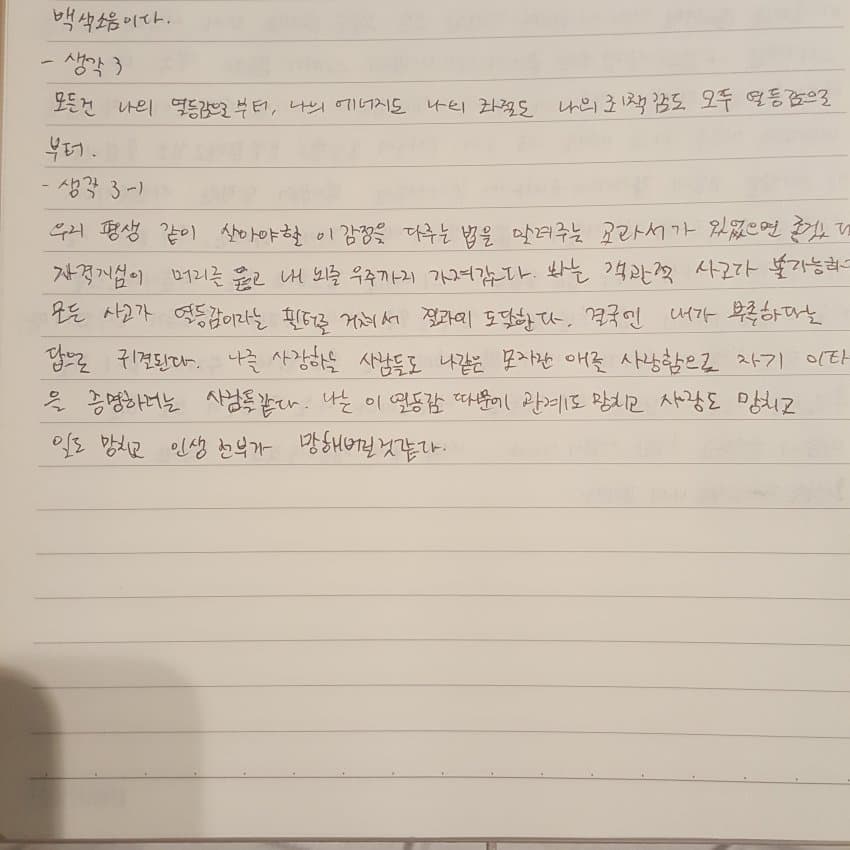 백색소음이다.
- 생각 3
모든건 나의 열등감으로부터, 나의 에너지도 나의 좌절도 나의 죄책감도 모두 열등감으로
부터.
- 생각 3-1
우리 평생 같이 살아야할 이 감정을 다루는 법을 알려주는 교과서가 있었으면 좋겠다
자격지심이 머리를 뚫고 내 뇌를 우주까지 가져갑다. 객관적 사고가 불가능하
모든 사고가 열등감이라는 필터를 거쳐서 결과에 도달한다. 결국엔 내가 부족하다는
답으로 귀결된다. 나를 사랑하는 사람들도 나같은 모자란 애를 사랑함으로 자기 이타
을 증명하려는 사람들같다. 나는 이 열등감 때문에 관계도 망치고 사랑도 망치고
일도 망치고 인생 전부가 망해버릴것같다.